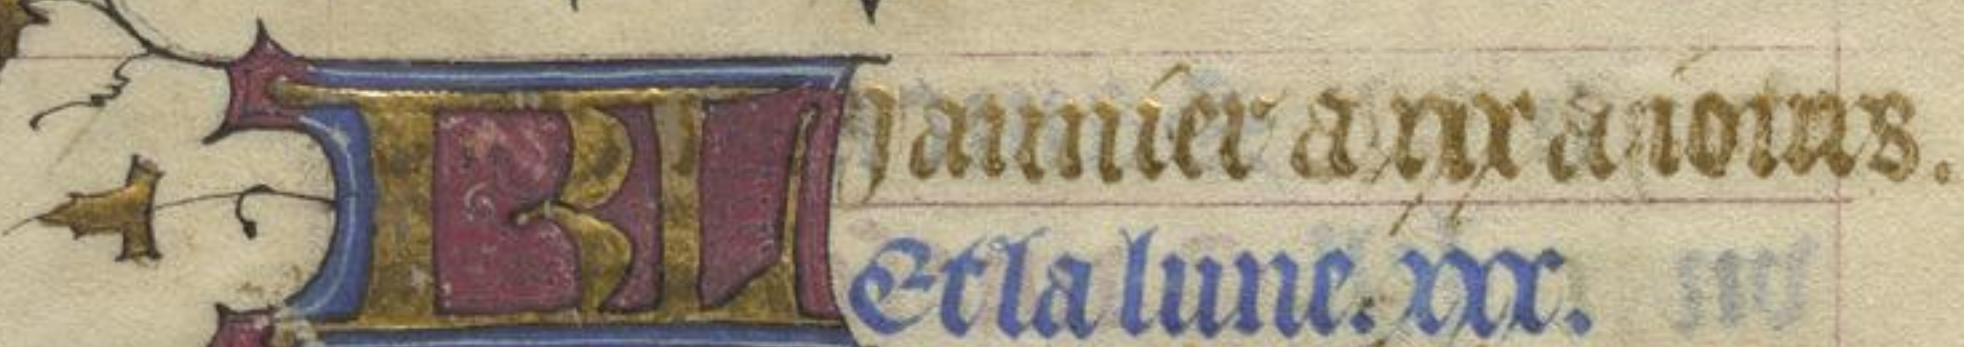 KL Januier a xxx a iours.
Et la lune. xxx.